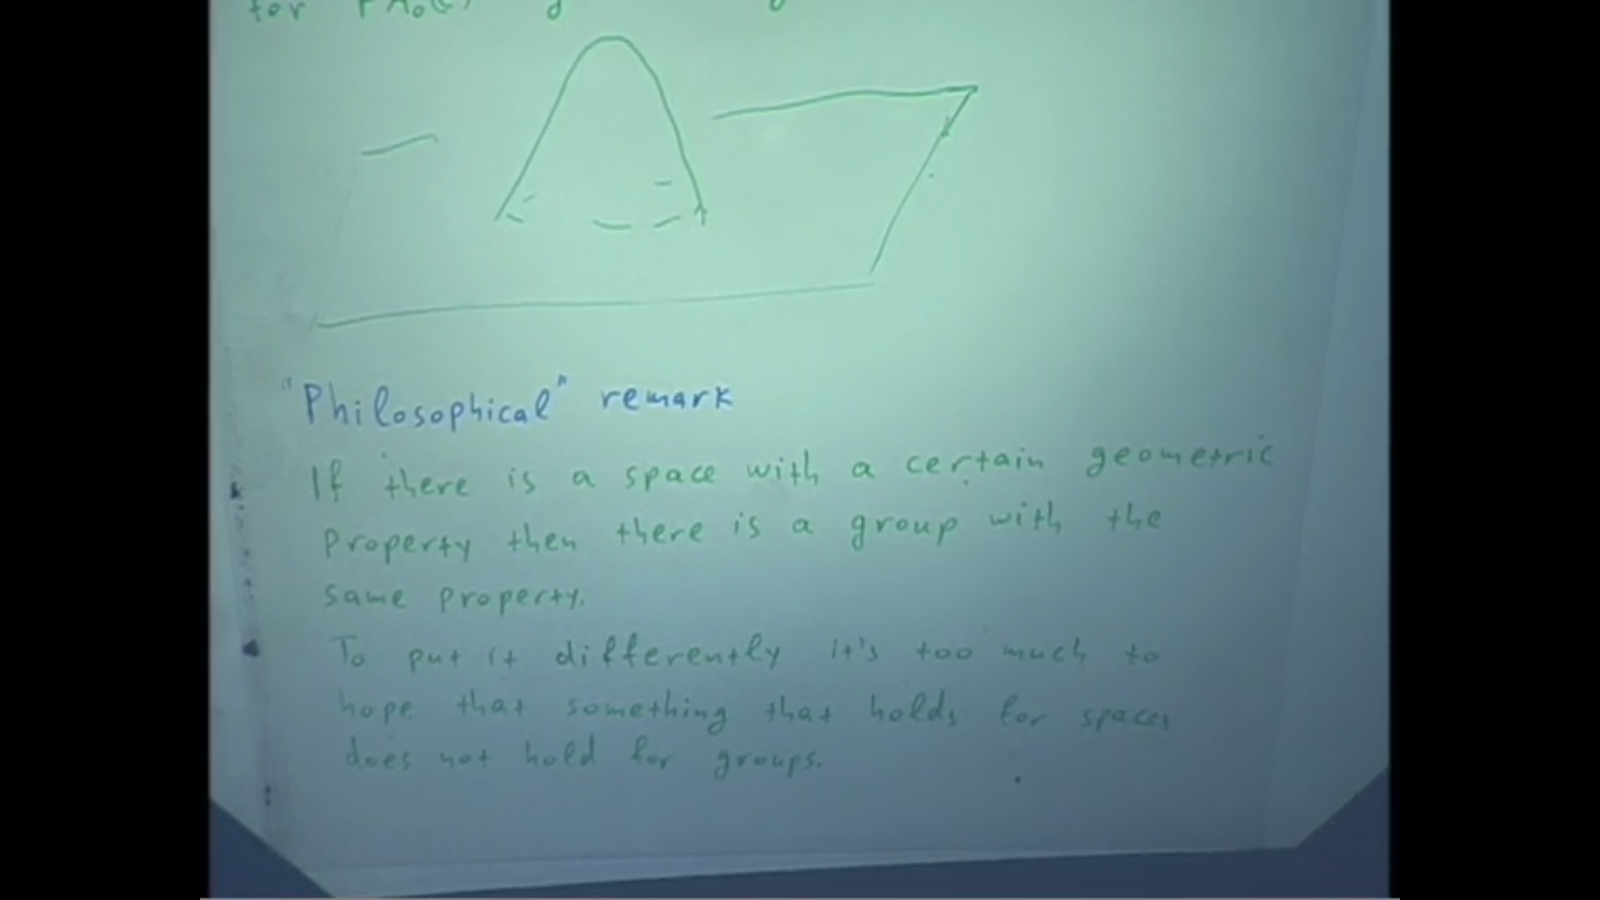 for
"Philosophical" remark
If there is a space with a certain geometric
property then there is a group with the
same property.
To put it differently it's too much to
hope that something that holds for spaces
does not hold for groups.